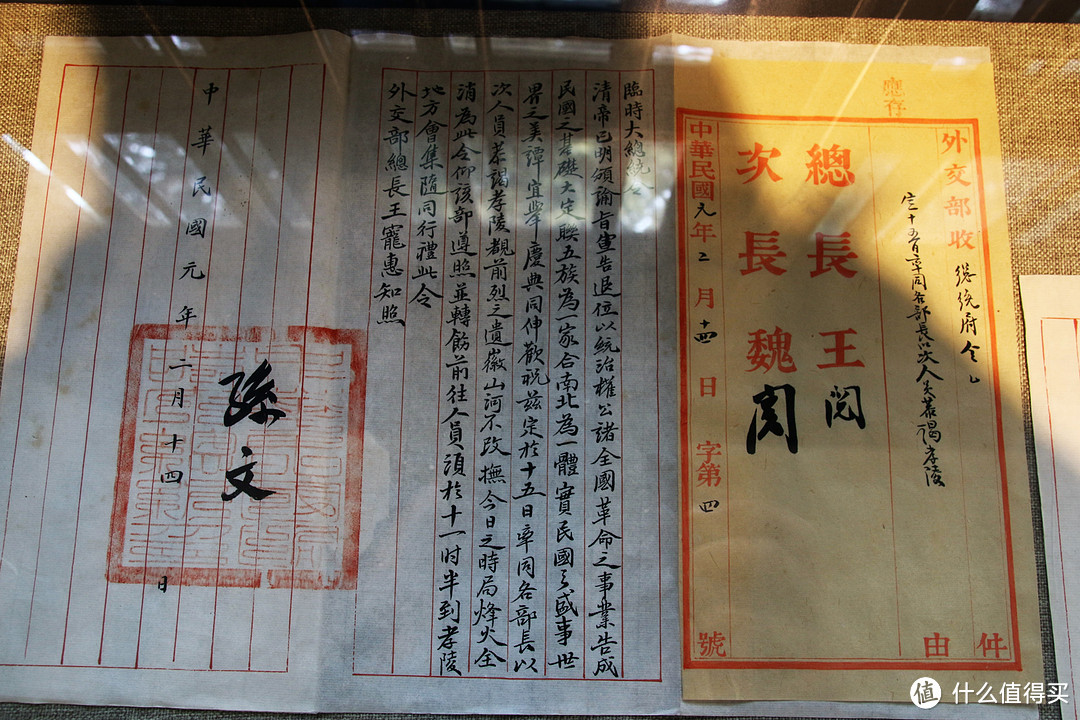 應存
外交部收
總統府令
件由
定十五日率同各部長以次人員恭謁孝陵
總長王閱
次長魏閱
中華民國元年二月十四日字第四號
臨時大總統令
清帝已明頒諭旨宣告退位以統治權公諸全國革命之事業告成
民國之基礎大定聯五族為一家合南北為一體實民國之盛事世
界之美譚宜舉慶典同伸歡祝茲定於十五日率同各部長以
次人員恭謁孝陵覩前烈之遺徽山河不改撫今日之時局烽火全
消為此令仰該部遵照並轉飭前往人員須於十一时半到孝陵
地方會集隨同行禮此令
外交部總長王寵惠知照
孫文
中華民國元年二月十四日
值 什么值得买